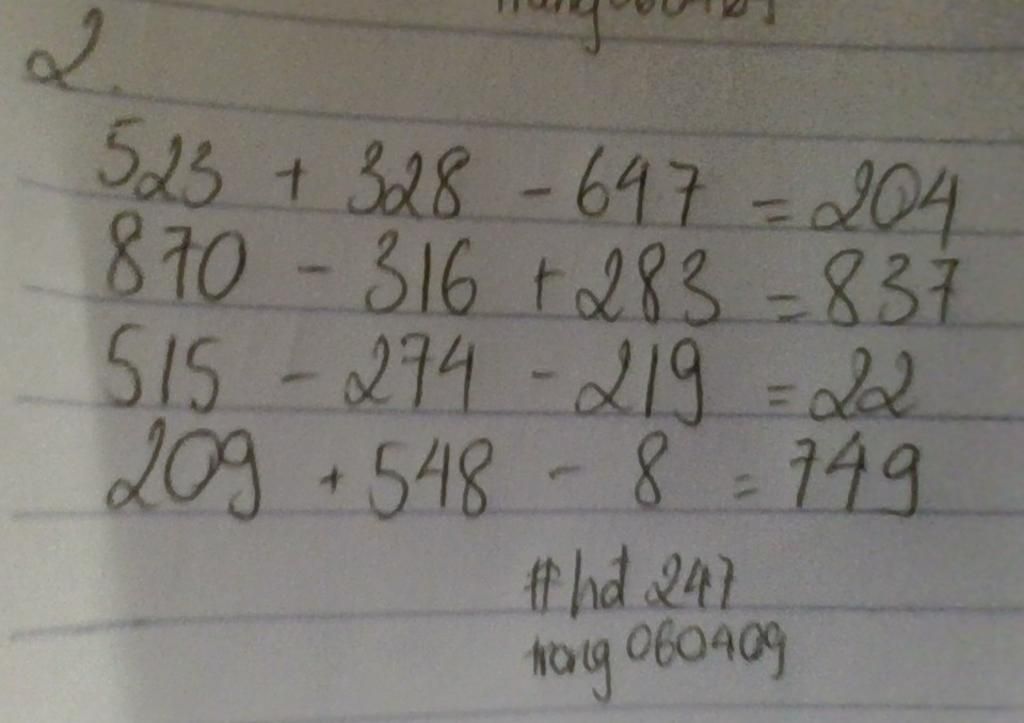 2.
523 + 328 - 647 = 204
870 - 316 + 283 = 837
515 - 274 - 219 = 22
209 + 548 - 8 = 749
#hdt 247
trang 060409